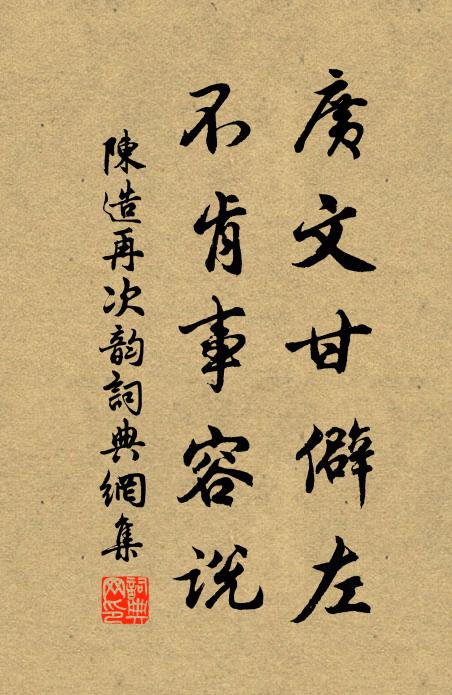 廣文甘僻左
不肯事容説
陳造再次韵詞典網集
詞典网印